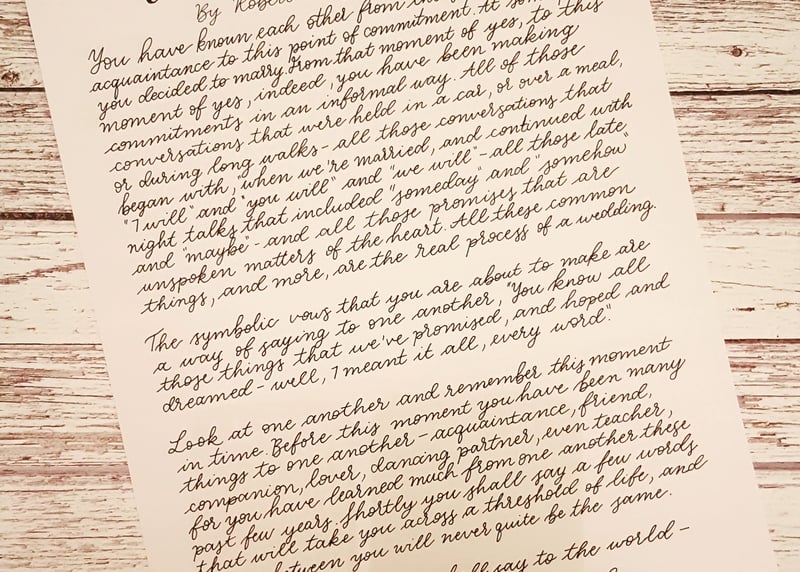 By Robert
You have known each other from the
acquaintance to this point of commitment. At some
you decided to marry. From that moment of yes, to this
moment of yes, indeed, you have been making
commitments in an informal way. All of those
conversations that were held in a car, or over a meal,
or during long walks - all those conversations that
began with, "when we're married, and continued with
"I will" and "you will" and "we will" - all those late
night talks that included "someday" and "somehow"
and "maybe" - and all those promises that are
unspoken matters of the heart. All these common
things, and more, are the real process of a wedding.
The symbolic vows that you are about to make are
a way of saying to one another, "You know all
those things that we've promised, and hoped and
dreamed - well, I meant it all, every word".
Look at one another and remember this moment
in time. Before this moment you have been many
things to one another - acquaintance, friend,
companion, lover, dancing partner, even teacher,
for you have learned much from one another these
past few years. Shortly you shall say a few words
that will take you across a threshold of life, and
between you will never quite be the same.
say to the world -